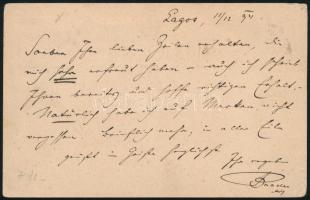 Lagos, 11/12 94.
Soeben Ihre lieben Zeilen erhalten, die
mich sehr erfreut haben – auch ich schrieb
Ihnen bereits und hoffe richtigen Erhalt.
Natürlich habe ich auf Marken nicht
vergessen. Brieflich mehr, in aller Eile
grüßt im Geiste herzlichst
Ihr ergeben